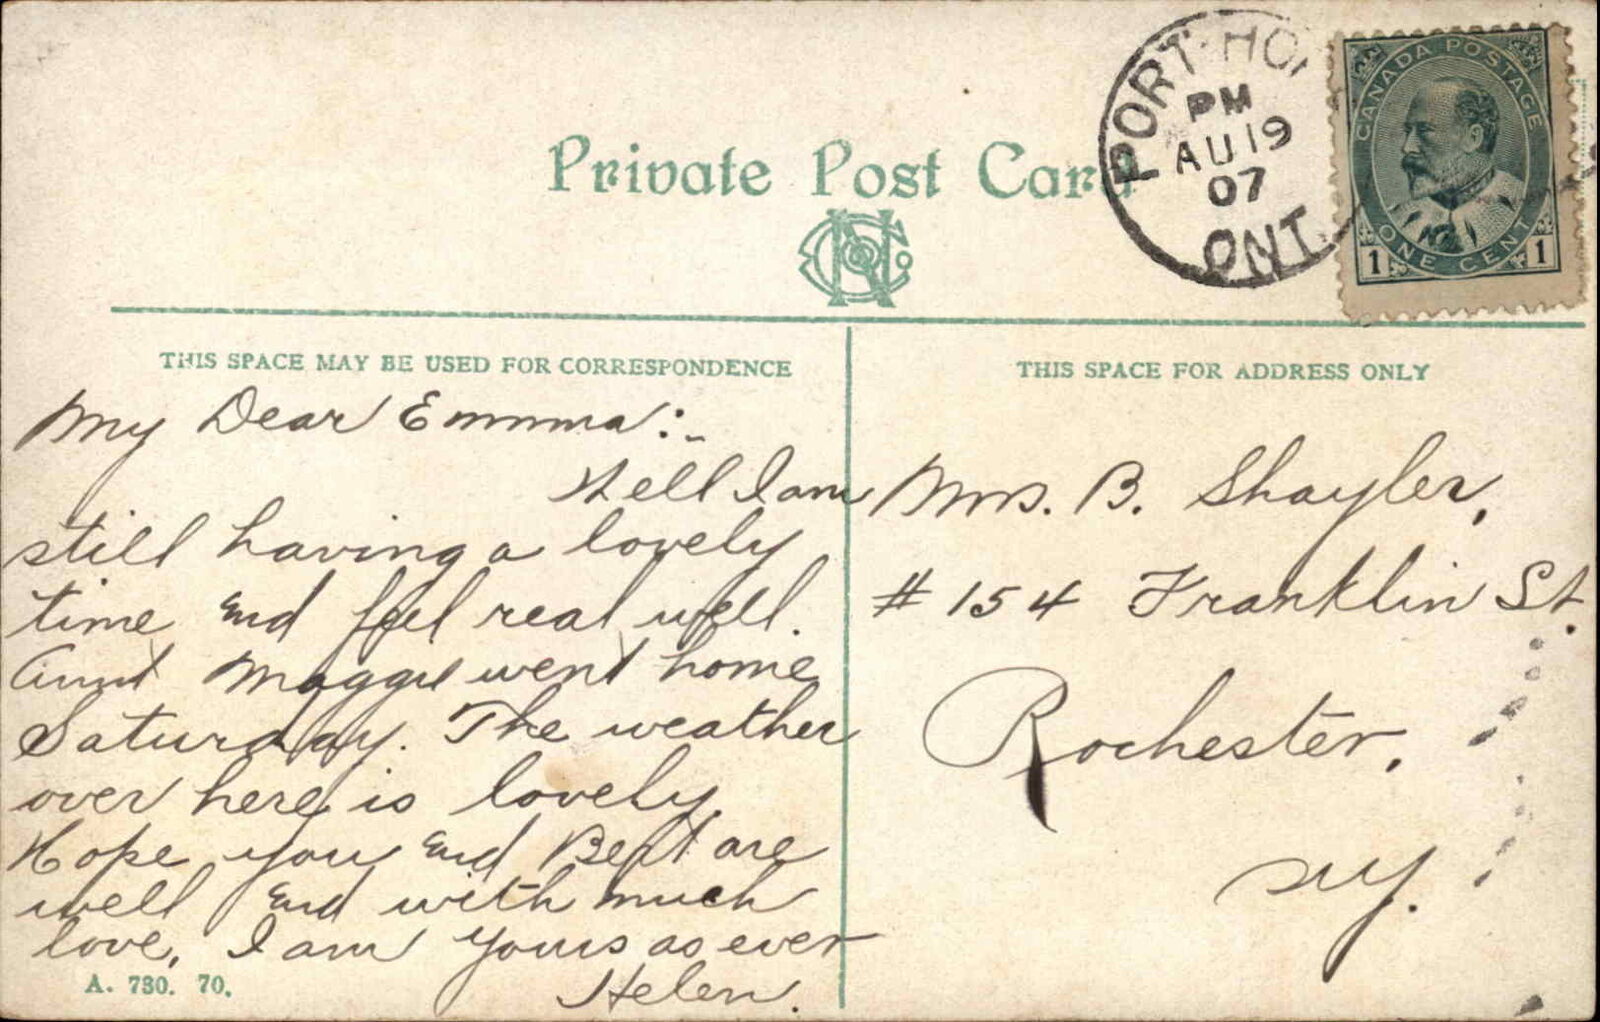 PORT HO
PM
AU 19
07
ONT.
CANADA POSTAGE
ONE CENT
1 1
Private Post Card
THIS SPACE MAY BE USED FOR CORRESPONDENCE
My Dear Emma:-
Well I am
still having a lovely
time and feel real well.
Aunt Maggie went home
Saturday. The weather
over here is lovely.
Hope you and Bert are
well and with much
love, I am yours as ever
Helen.
A. 730. 70.
THIS SPACE FOR ADDRESS ONLY
Mrs. B. Shayler,
# 154 Franklin St.
Rochester,
N.Y.